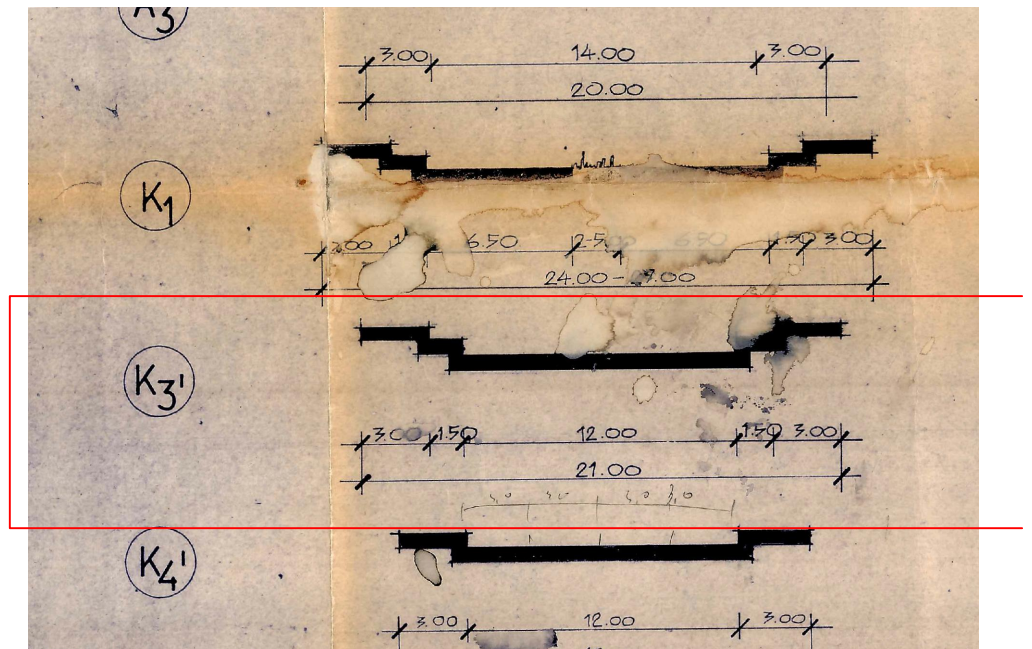 A3
3.00 14.00 3.00
20.00
K1
3.00 6.50 2-5.00 6.50 1.50 3.00
24.00-27.00
K3'
3.00 1.50 12.00 1.50 3.00
21.00
3,0 3,0 3,0 3,0
K4'
3.00 12.00 3.00